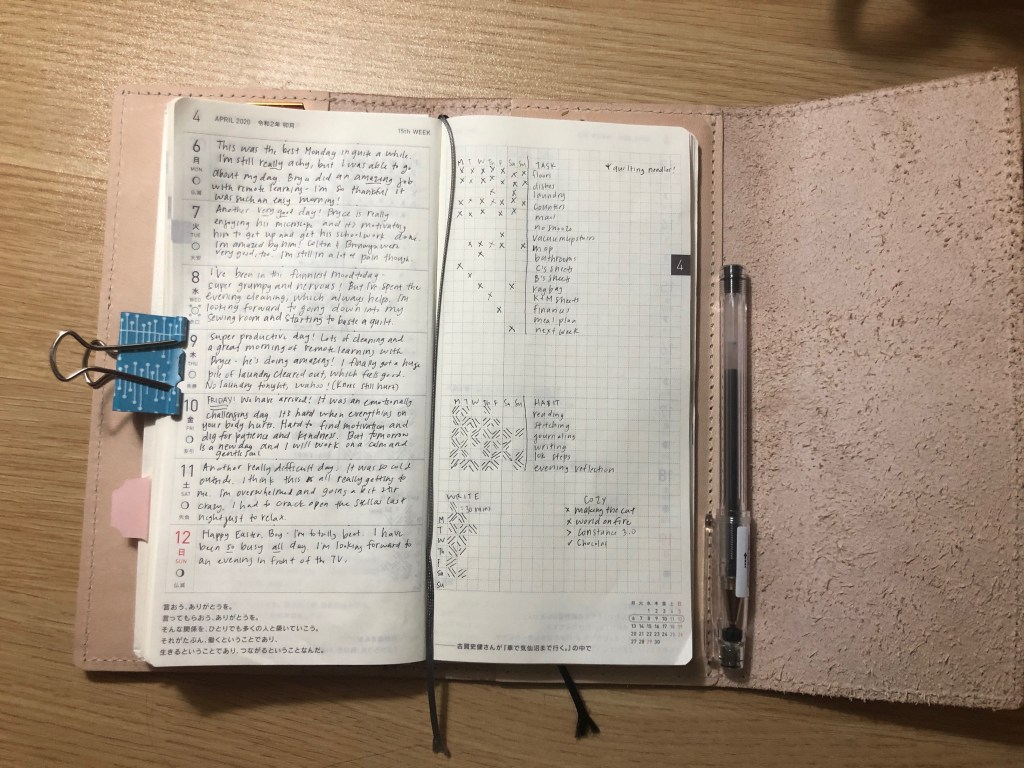 4 APRIL 2020 令和2年 卯月
15th WEEK
6
月
MON
This was the best Monday in quite a while.
I'm still really achy, but I was able to go
about my day. Bryce did an amazing job
with remote learning - I'm so thankful it
was such an easy morning!
仏滅
7
火
TUE
Another very good day! Bryce is really
enjoying his microscope and it's motivating
him to get up and get his schoolwork done.
I'm amazed by him! Colton & were
very good, too. I'm still in a lot of pain though.
大安
8
水
WED
I've been in the funniest mood today -
super grumpy and nervous! But I've spent the
evening cleaning, which always helps. I'm
looking forward to going down into my
sewing room and starting to baste a quilt.
9
木
THU
Super productive day! Lots of cleaning and
a great morning of remote learning with
Bryce - he's doing amazing! I finally got a huge
pile of laundry cleared out, which feels good.
No laundry tonight, wahoo! (Knees still hurt)
先勝
10
金
FRI
FRIDAY! We have arrived! It was an emotionally
challenging day. It's hard when everything on
your body hurts. Hard to find motivation and
dig for patience and kindness. But tomorrow
is a new day and I will work on a calm and
gentle soul
友引
11
土
SAT
Another really difficult day. It was so cold
outside. I think this is all really getting to
me. I'm overwhelmed and going a bit stir
crazy. I had to crack open the Stellas last
night just to relax.
先負
12
日
SUN
Happy Easter, Bug. I'm totally beat. I have
been so busy all day. I'm looking forward to
an evening in front of the TV.
仏滅
言おう、ありがとうを。
言ってもらおう、ありがとうを。
そんな関係を、ひとりでも多くの人と築いていこう。
それがたぶん、働くということであり、
生きるということであり、つながるということなんだ。
M T W Th F Sa Su TASK
* quilting needles!
floors
dishes
laundry
counters
mail
no snooze
vacuum upstairs
mop
bathrooms
C's sheets
B's sheets
rag bag
K+M sheets
finances
meal plan
next week
4
M T W Th F Sa Su HABIT
reading
stitching
journaling
writing
10k steps
evening reflection
WRITE
30 mins
M
T
W
Th
F
Sa
Su
COZY
x making the cut
x world on fire
> constance 3.0
✓ Chocolat
月 火 水 木 金 土 日
1 2 3 4 5
6 7 8 9 10 11 12
13 14 15 16 17 18 19
20 21 22 23 24 25 26
27 28 29 30
古賀史健さんが『車で気仙沼まで行く。』の中で